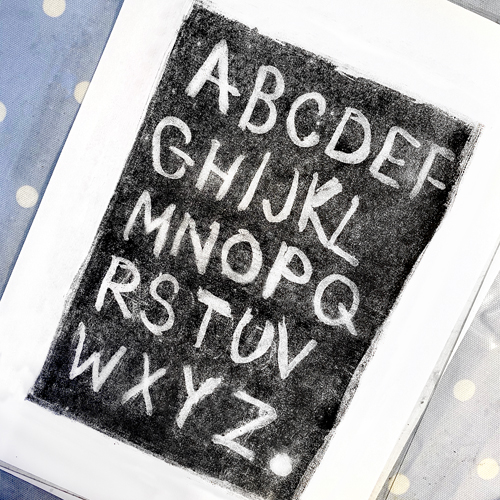 ABCDEF
GHIJKL
MNOPQ
RSTUV
WXYZ.